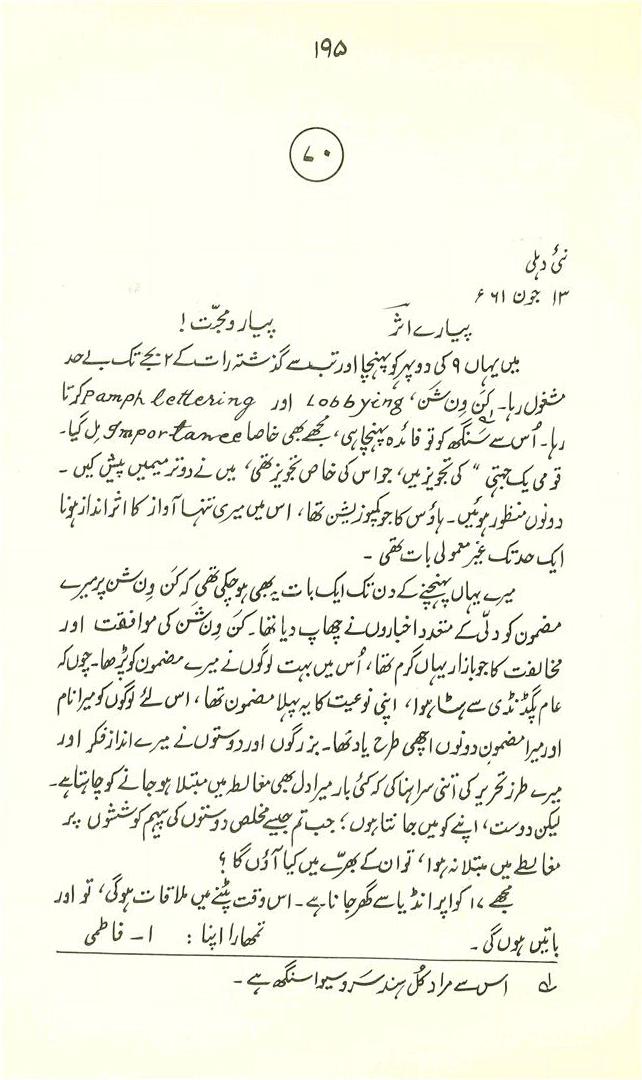 ۱۹۵
۷۰
نئی دہلی
۱۳ جون ۶۱ ء
پیارے اثرؔ پیار و محبّت !
میں یہاں ۹ کی دوپہر کو پہنچا اور تب سے گذشتہ رات کے ۲ بجے تک بے حد
مشغول رہا۔ کَن وِن شَن، Lobbying اور Pamphlettering کرتا
رہا۔ اُس سے سنگھ کو تو فائدہ پہنچا ہی، مجھے بھی خاصا Importance مِل گیا۔
قومی یک جہتی " کی تجویز میں، جو اس کی خاص تجویز تھی، میں نے دو ترمیمیں پیش کیں ۔
دونوں منظور ہوئیں۔ ہاؤس کا جو کمپوزیشن تھا، اس میں میری تنہا آواز کا اثر انداز ہونا
ایک حد تک غیر معمولی بات تھی ۔
میرے یہاں پہنچنے کے دن تک ایک بات یہ بھی ہو چکی تھی کہ کَن وِن شن پر میرے
مضمون کو دلّی کے متعدد اخباروں نے چھاپ دیا تھا۔ کَن وِن شَن کی موافقت اور
مخالفت کا جو بازار یہاں گرم تھا، اُس میں بہت لوگوں نے میرے مضمون کو پڑھا۔ چوں کہ
عام پگڈنڈی سے ہٹا ہوا، اپنی نوعیت کا یہ پہلا مضمون تھا، اس لئے لوگوں کو میرا نام
اور میرا مضمون دونوں اچھی طرح یاد تھا۔ بزرگوں اور دوستوں نے میرے اندازِ فکر اور
میرے طرزِ تحریر کی اتنی سراہنا کی کہ کئی بار میرا دل بھی مغالطے میں مبتلا ہو جانے کو چاہتا ہے۔
لیکن دوست، اپنے کو میں جانتا ہوں؛ جب تم جیسے مخلص دوستوں کی پیہم کوششوں پر
مغالطے میں مبتلا نہ ہوا، تو ان کے بھرّے میں کیا آؤں گا ؟
مجھے ۱۷ کو اپر انڈیا سے گھر جانا ہے۔ اس وقت پٹنے میں ملاقات ہوگی، تو اور
باتیں ہوں گی ۔ تمھارا اپنا : ا۔ فاطمی
لہ اس سے مراد کُل ہند سَرو سیوا سنگھ ہے ۔